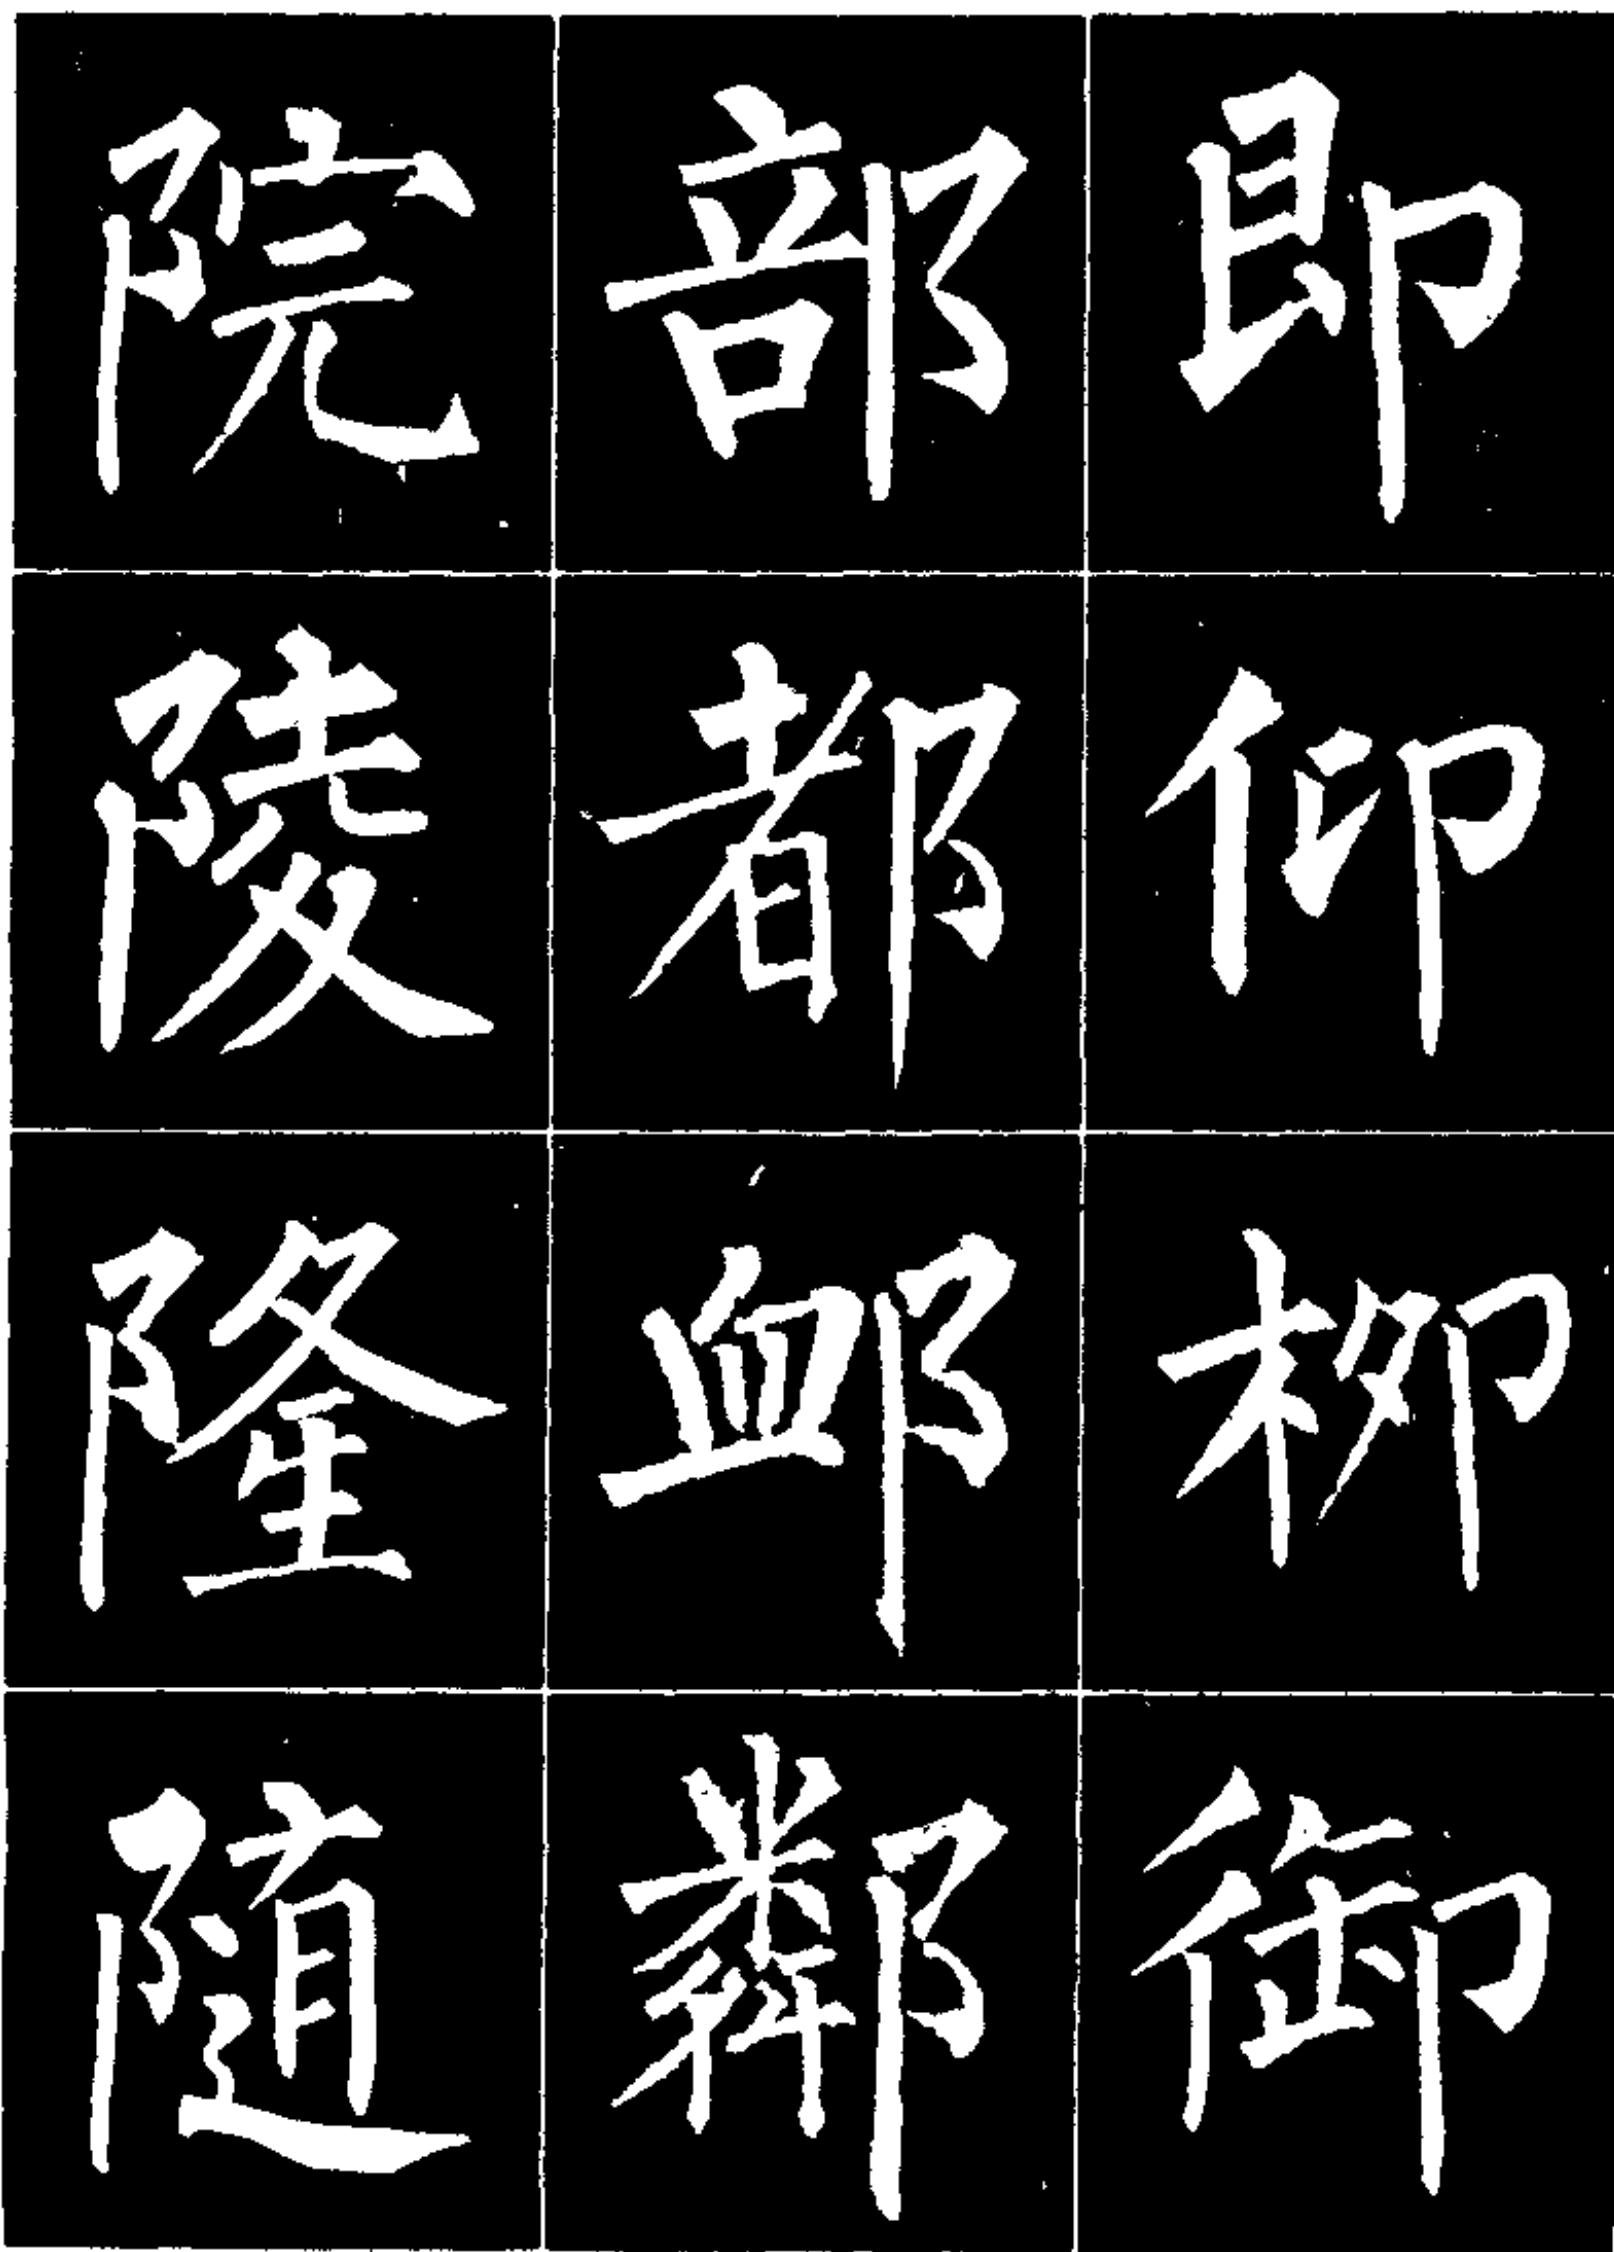 即仰柳御
部都䘏鄰
院陵隆随